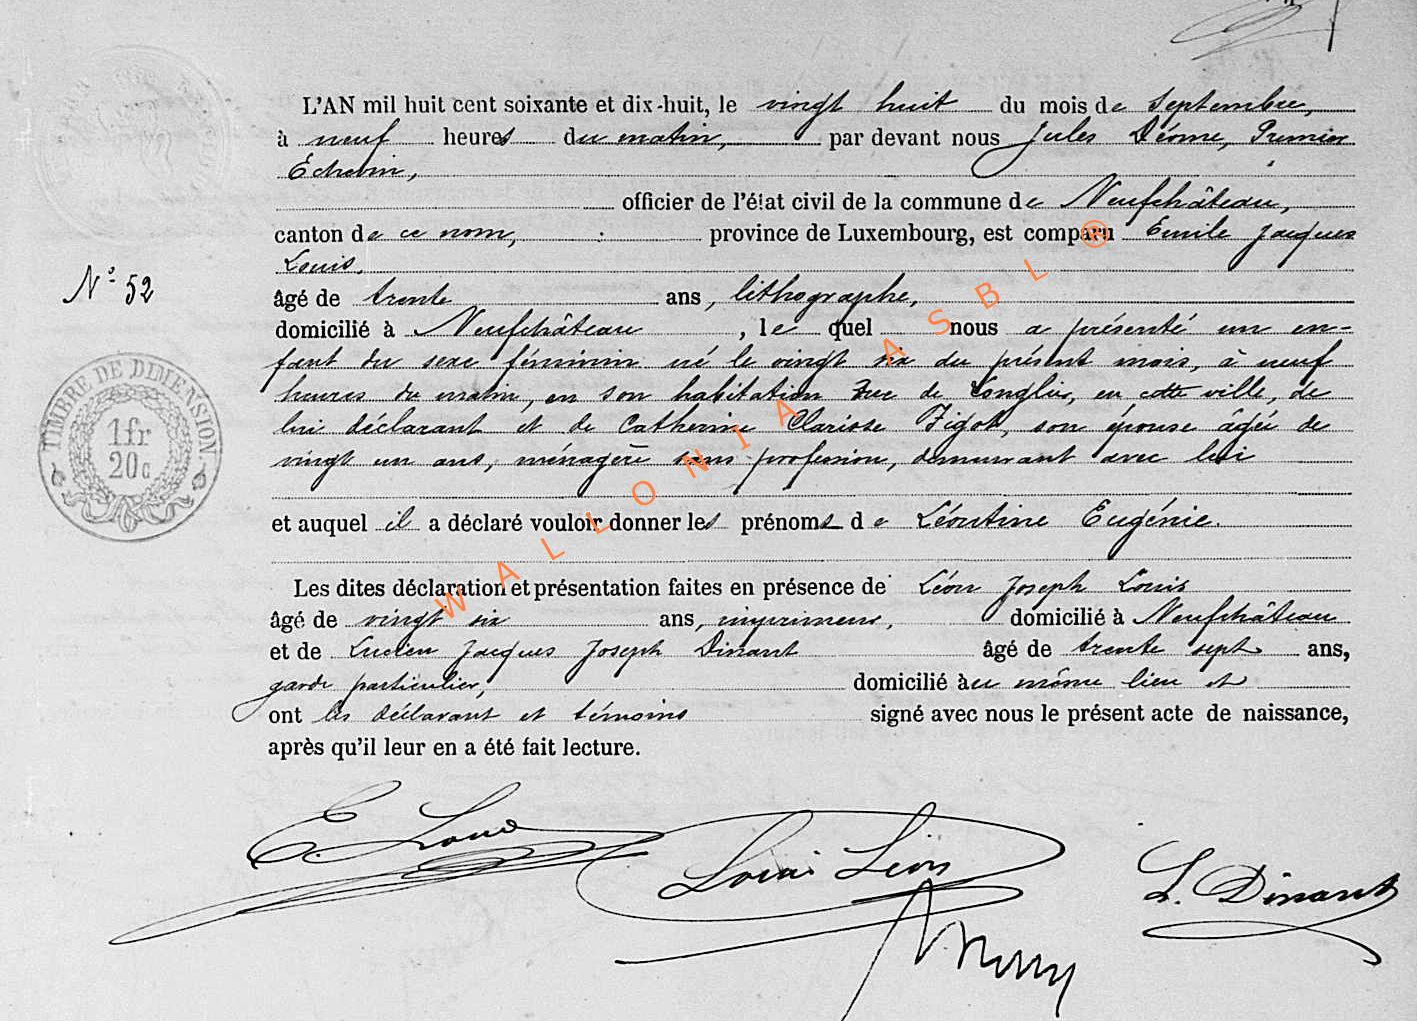 L'AN mil huit cent soixante et dix-huit, le vingt huit du mois de Septembre,
à neuf heures du matin, par devant nous Jules Déome, Premier
Echevin,
officier de l'état civil de la commune de Neufchâteau,
canton de ce nom, province de Luxembourg, est comparu Emile Jacques
Louis,
N° 52
âgé de trente ans, lithographe,
domicilié à Neufchâteau, le quel nous a présenté un en-
fant du sexe féminin né le vingt six du présent mois, à neuf
heures du matin, en son habitation rue de Longlier, en cette ville, de
lui déclarant et de Catherine Clarisse Zigot, son épouse âgée de
vingt un ans, ménagère sans profession, demeurant avec lui
et auquel il a déclaré vouloir donner les prénoms de Léontine Eugénie.
Les dites déclaration et présentation faites en présence de Léon Joseph Louis
âgé de vingt six ans, imprimeur, domicilié à Neufchâteau
et de Lucien Jacques Joseph Dinant âgé de trente sept ans,
garde particulier, domicilié au même lieu et
ont les déclarant et témoins signé avec nous le présent acte de naissance,
après qu'il leur en a été fait lecture.
TIMBRE DE DIMENSION
1fr
20c
E. Louis
Louis Léon
L. Dinant
WALLONIA ASBL ®